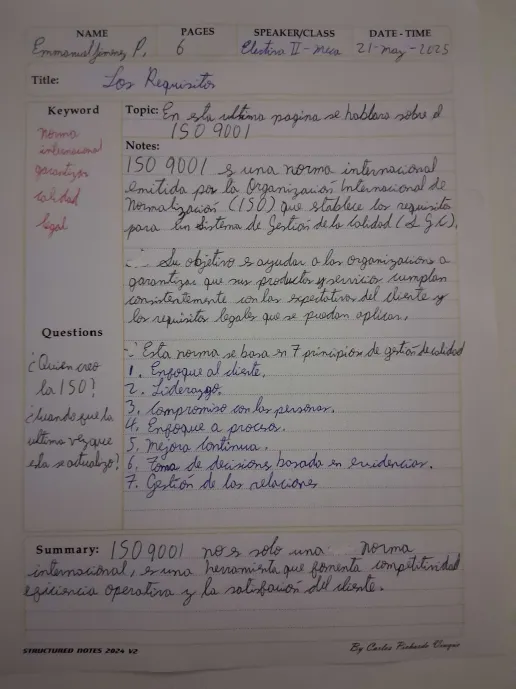 NAME PAGES SPEAKER/CLASS DATE - TIME
Emmanuel Jimenez P. 6 Electiva II - Meca 21-may-2025
Title: Los Requisitos
Keyword
norma
internacional
garantizar
calidad
legal
Topic: En esta ultima pagina se hablara sobre el
ISO 9001
Notes:
ISO 9001 es una norma internacional
emitida por la Organización Internacional de
Normalización (ISO) que establece los requisitos
para un Sistema de Gestión de la Calidad (SGC).
∴ Su objetivo es ayudar a las organizaciones a
garantizar que sus productos y servicios cumplan
consistentemente con las expectativas del cliente y
los requisitos legales que se puedan aplicar.
Questions
¿Quien creo
la ISO?
¿Cuando fue la
ultima vez que
esta se actualizo?
∴ Esta norma se basa en 7 principios de gestión de calidad
1. Enfoque al cliente.
2. Liderazgo.
3. Compromiso con las personas.
4. Enfoque a procesos.
5. Mejora continua.
6. Toma de decisiones basada en evidencias.
7. Gestión de las relaciones
Summary: ISO 9001 no es solo una norma
internacional, es una herramienta que fomenta competitividad
eficiencia operativa y la satisfacción del cliente.
STRUCTURED NOTES 2024 V2
By Carlos Pichardo Vuque